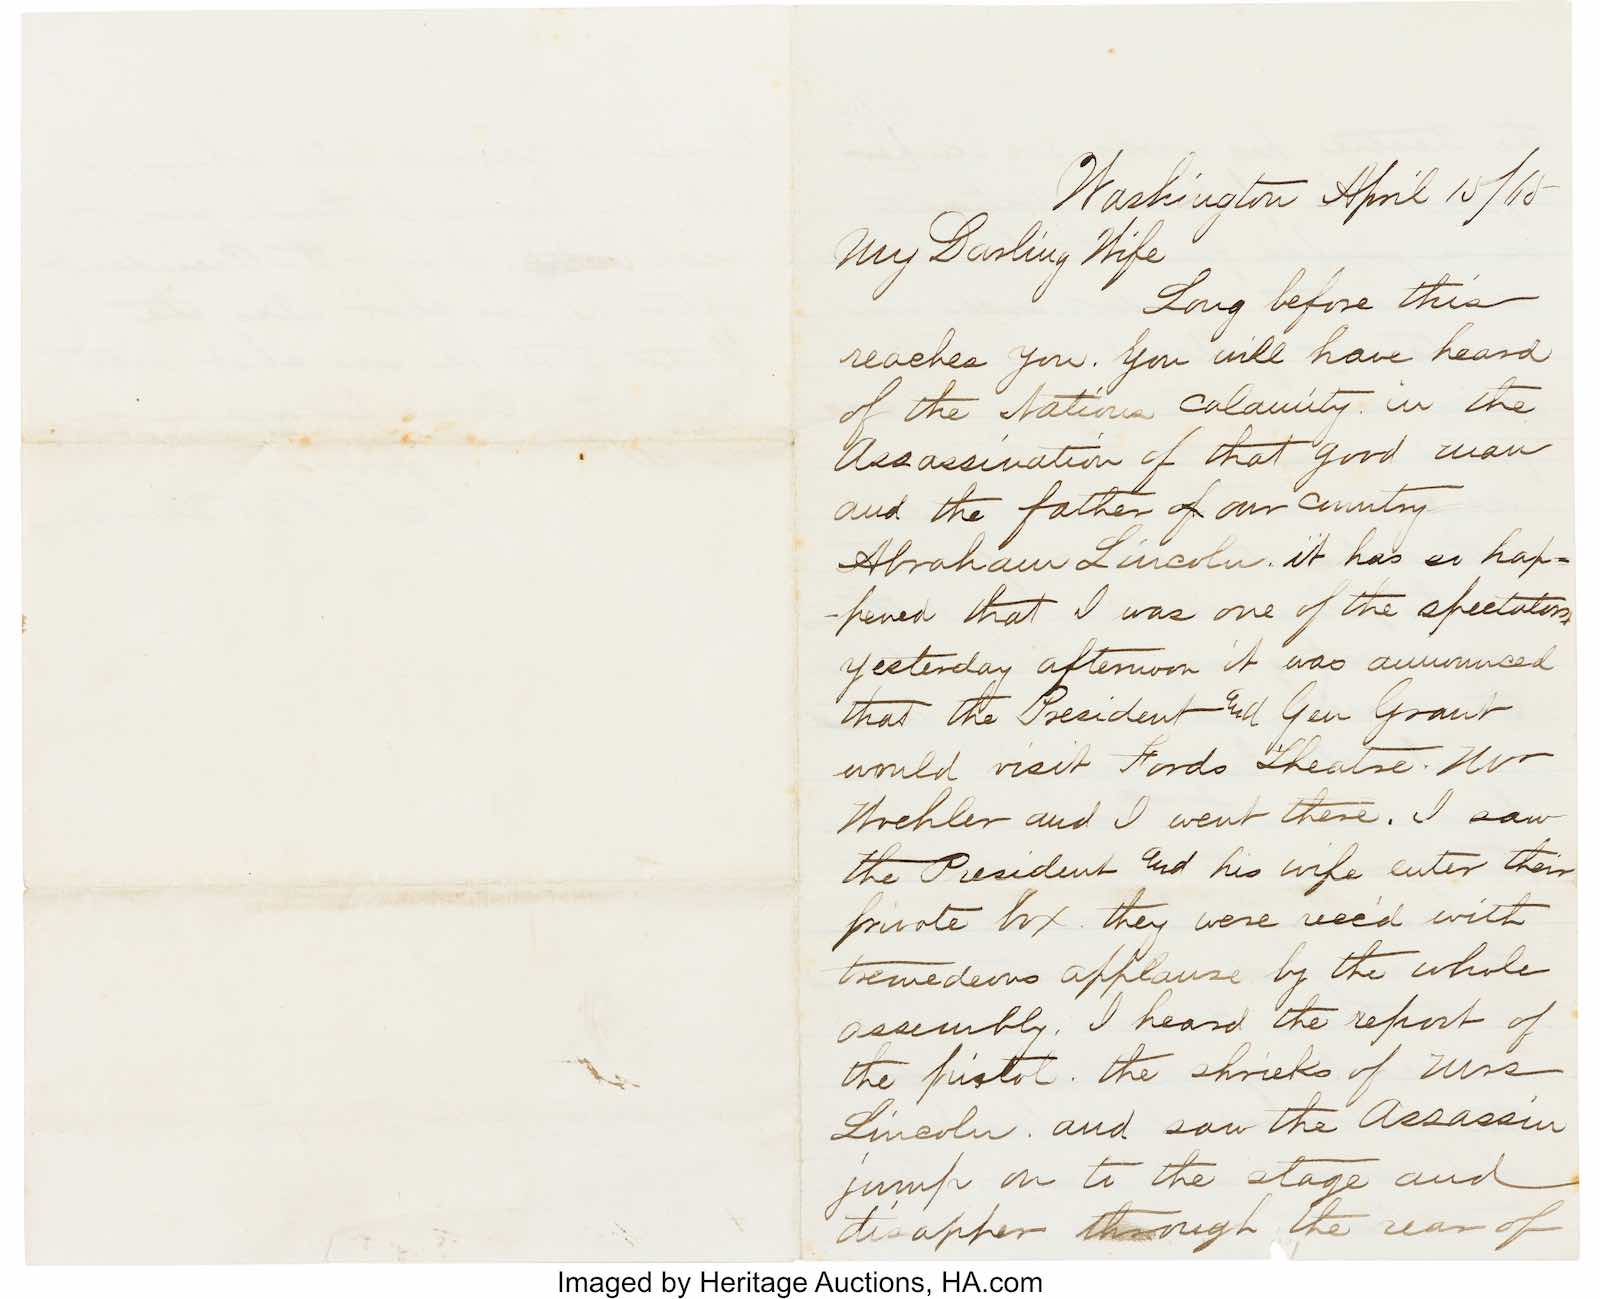 Washington April 15/65
My Darling Wife
Long before this
reaches you. You will have heard
of the Nations calamity. in the
Assassination of that good man
and the father of our country
Abraham Lincoln. it has so hap=
-pened that I was one of the spectators
yesterday afternoon it was announced
that the President and Gen Grant
would visit Fords Theatre. Mr
Woehler and I went there. I saw
the President and his wife enter their
private box. they were rece'd with
tremedeous applause by the whole
assembly. I heard the report of
the pistol. the shrieks of Mrs
Lincoln. and saw the Assassin
jump on to the stage and
disapper through the rear of
Imaged by Heritage Auctions, HA.com